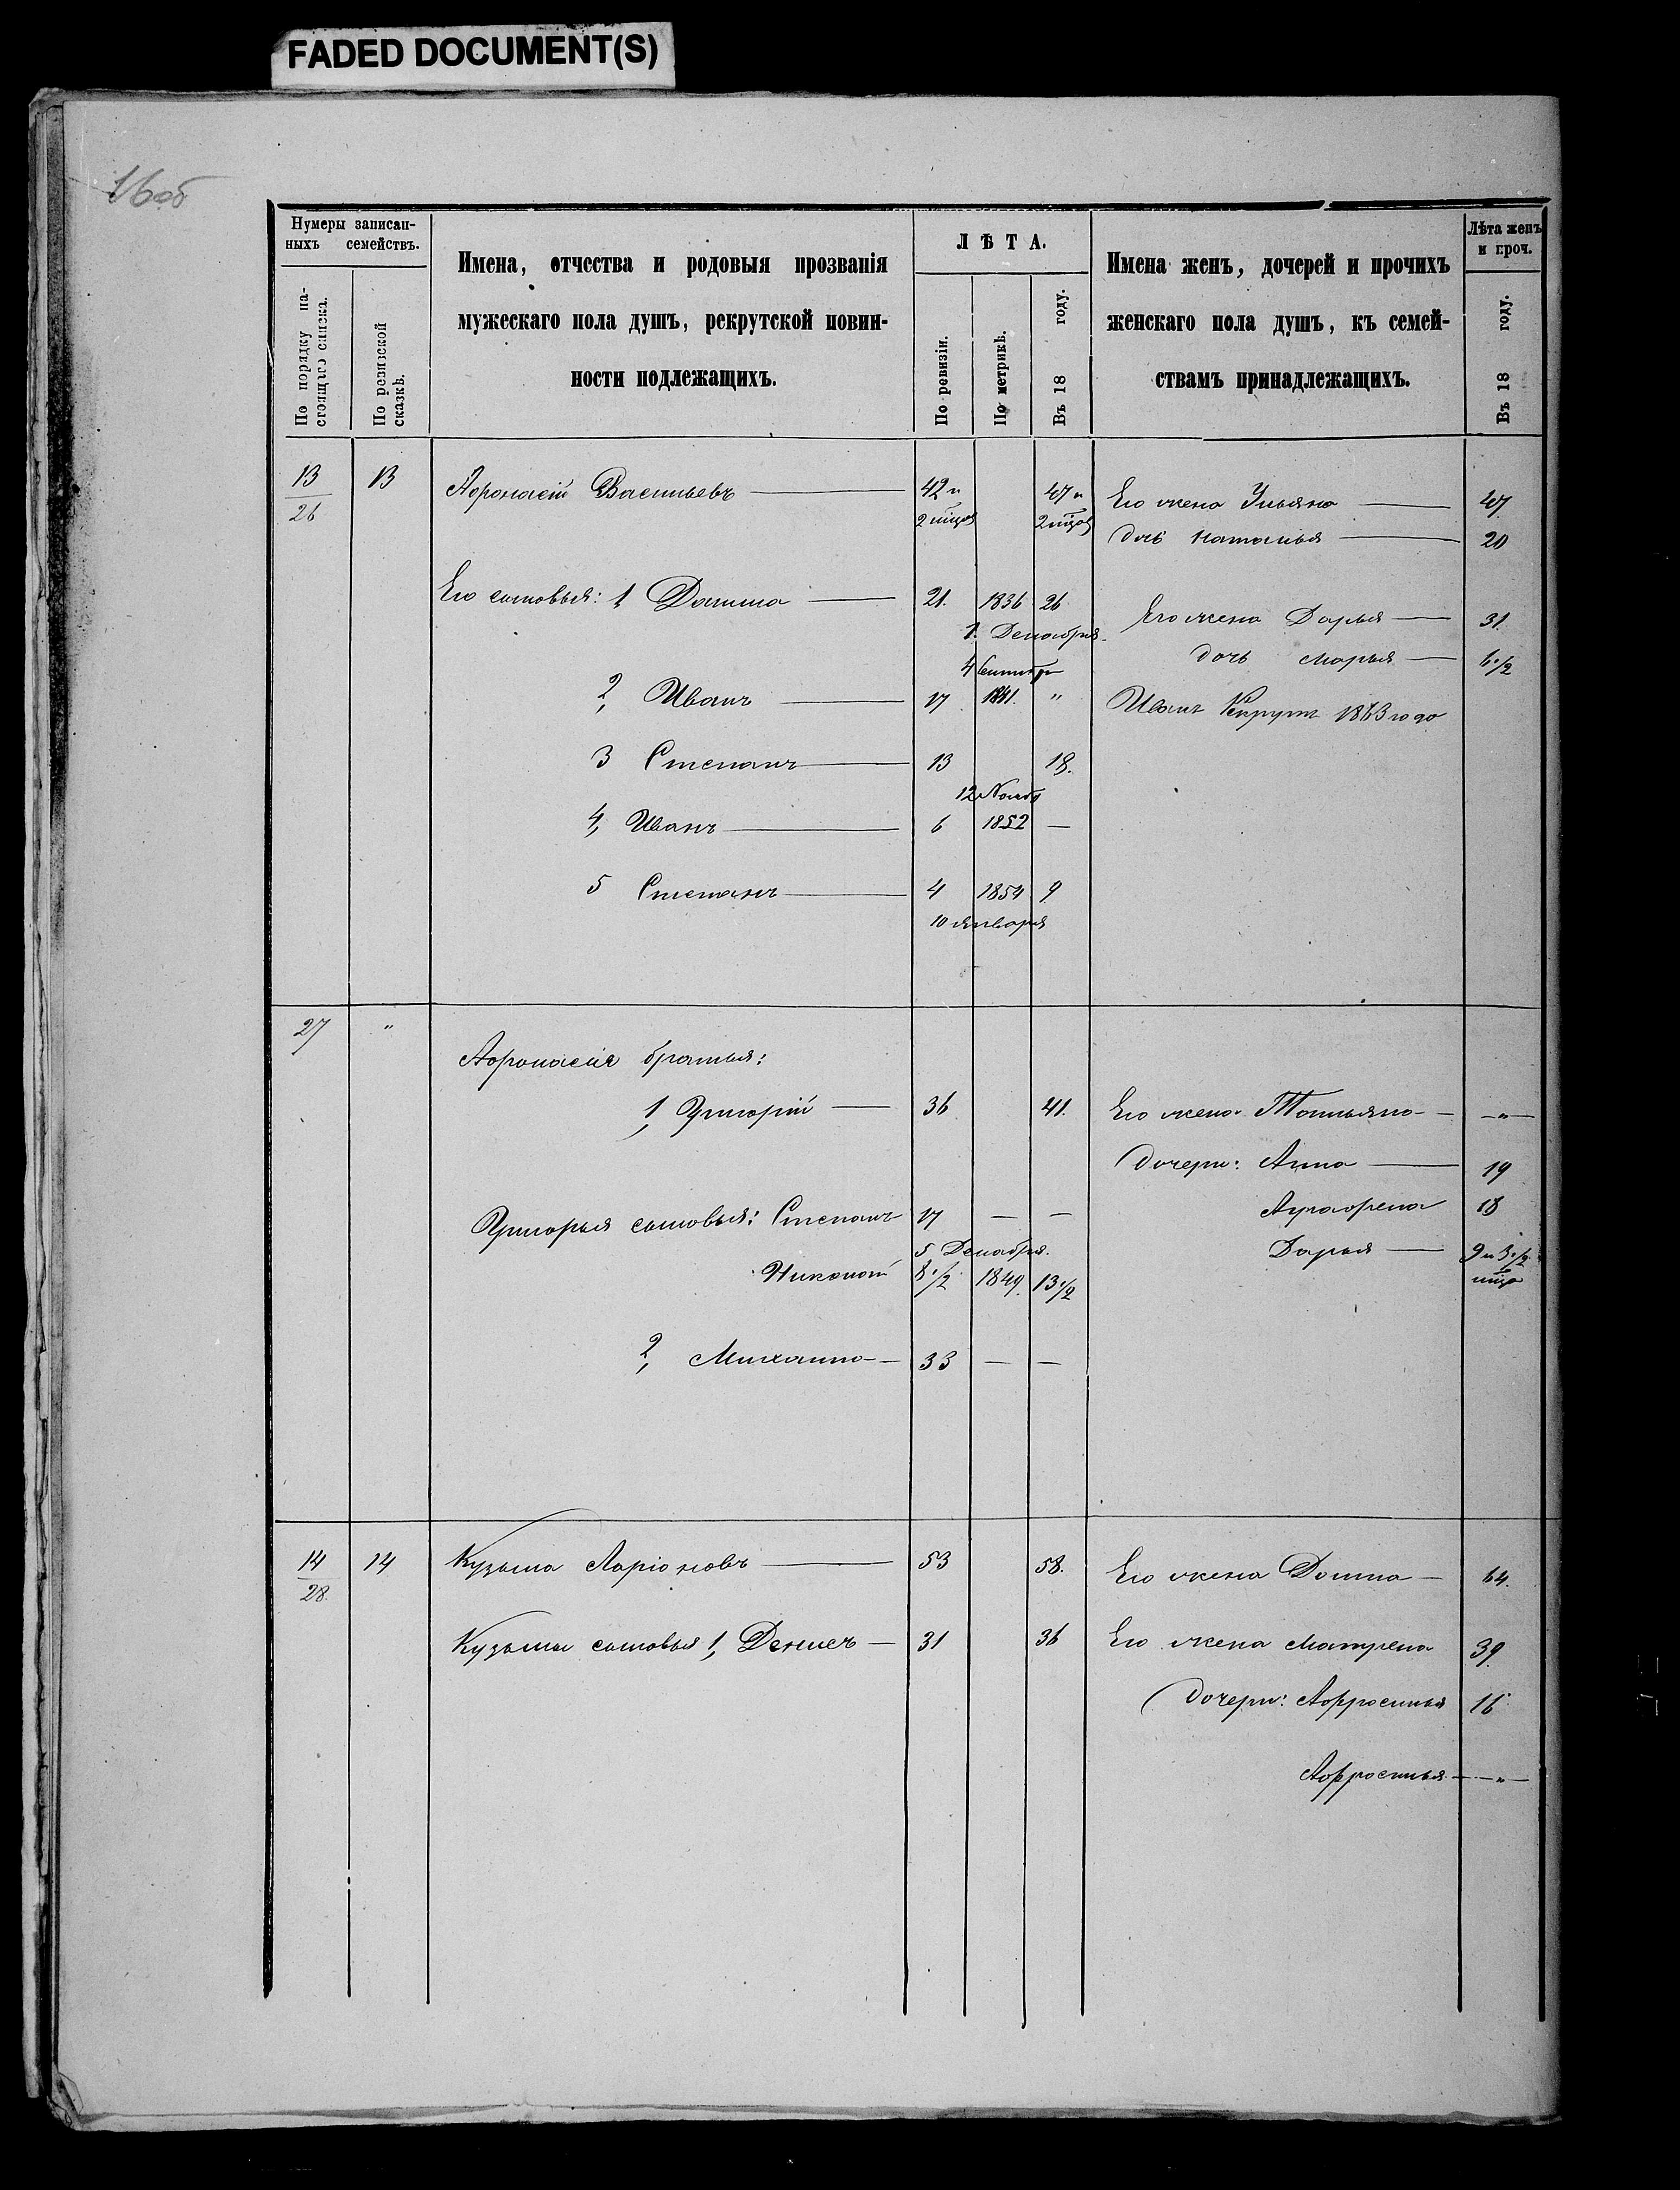 FADED DOCUMENT(S)
16об
Нумеры записан-
ныхъ семействъ.
По порядку на-
стоящаго списка.
По ревизской
сказкѣ.
Имена, отчества и родовыя прозванія
мужескаго пола душъ, рекрутской повин-
ности подлежащихъ.
ЛѢТА.
По ревизіи.
По метрикѣ.
Въ 18 году.
Имена женъ, дочерей и прочихъ
женскаго пола душъ, къ семей-
ствамъ принадлежащихъ.
Лѣта женъ
и проч.
Въ 18 году.
13 13 Афонасій Васильевъ 42 и 47 и Его жена Ульяна 47
26 2 мѣця 2 мѣця дочь Наталья 20
Его сыновья: 1, Данила 21. 1836 26 Его жена Дарья 31.
1. Декабря. дочь Марья 6 1/2
4 Сентябр
2, Иванъ 17 1841. " Иванъ Рекрутъ 1863 года
3 Степанъ 13 18.
12 Нояб
4, Иванъ 6 1852 —
5 Степанъ 4 1854 9
10 января
27 "
Афонасія братья:
1, Григорій 36 41. Его жена Татьяна — " —
Дочери: Анна 19
Григорья сыновья: Степанъ 17 — — Аграфена 18
5 Декабря. Дарья 9 и 3 1/2
Никонъ 8 1/2 1849. 13 1/2 мѣця
2, Михаила 33 — —
14 14 Кузьма Ларіоновъ 53 58. Его жена Домна 64.
28.
Кузьмы сыновья 1, Денисъ 31 36 Его жена Матрена 39.
Дочери: Афросинья 16
Афросинья — " —